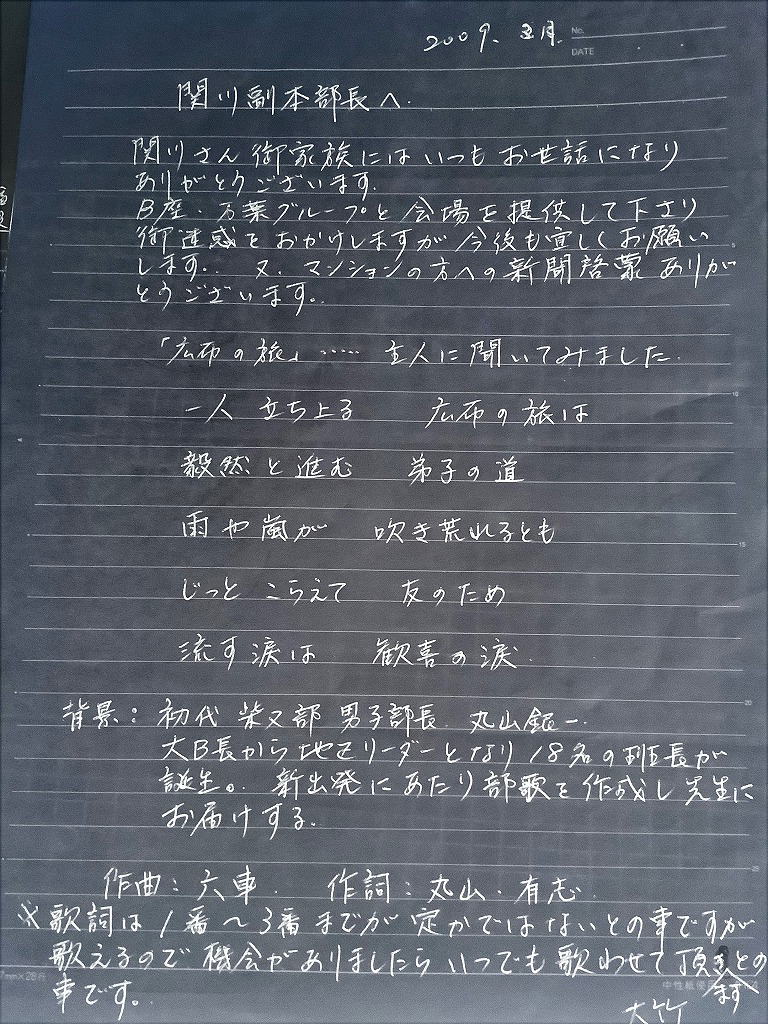 2009. 3月.
No.
DATE
関川副本部長へ.
関川さん御家族にはいつもお世話になり
ありがとうございます.
B座・万葉グループと会場を提供して下さり
御迷惑をおかけしますが今後も宜しくお願い
します.. 又、マンションの方への新聞啓蒙ありが
とうございます..
「広布の旅」…… 主人に聞いてみました.
一人 立ち上る 広布の旅は
毅然と進む 弟子の道
雨や嵐が 吹き荒れるとも
じっと こらえて 友のため
流す涙は 歓喜の涙.
背景: 初代 柴又部 男子部長 丸山銀一.
大B長から地区リーダーとなり18名の班長が
誕生。. 新出発にあたり部歌を作成し先生に
お届けする.
作曲: 六車. 作詞: 丸山・有志.
※歌詞は1番〜3番までが定かではないとの事ですが
歌えるので機会がありましたらいつでも歌わせて頂きますとの
事です。.
7mm×28行
大竹